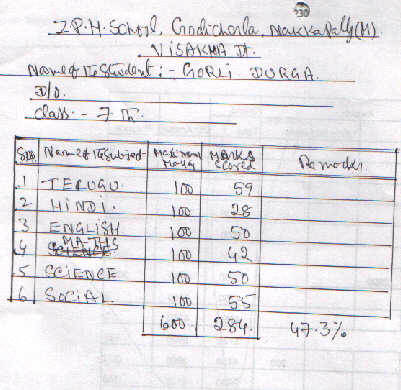 Z.P.H. School, Godicherla, Nakkapally(M)
VISAKHA Dt.
Name of the Student :- GORLI DURGA.
D/O.
class :- 7 Th.
S.No Name of the Subject Maximum Marks Marks Scored Remarks
1 TELUGU 100 59
2 HINDI. 100 28
3 ENGLISH 100 50
4 MATHS 100 42
5 SCIENCE 100 50
6 SOCIAL. 100 55
600. 284. 47.3%